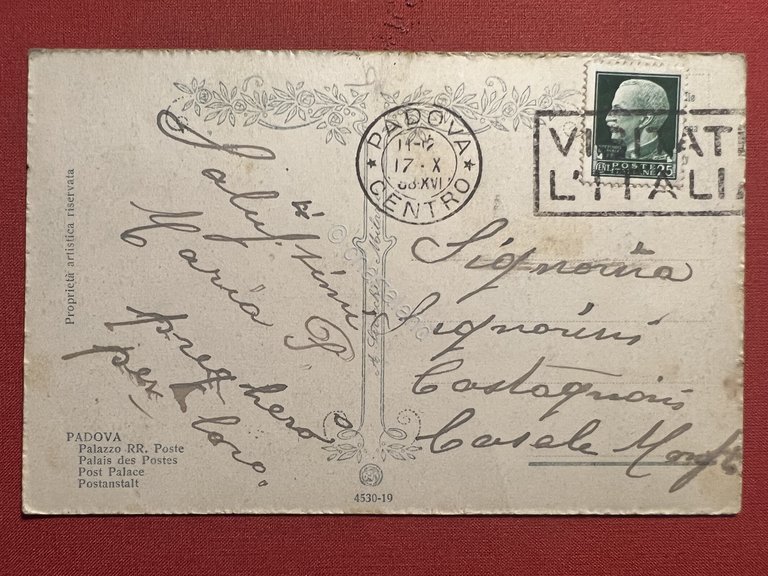 Proprietà artistica riservata
Salutissimi
Maria P
pregherò
per loro.
PADOVA
Palazzo RR. Poste
Palais des Postes
Post Palace
Postanstalt
4530-19
PADOVA
17·X
XVI
CENTRO
VISITATE
L'ITALIA
POSTE
Signorina
Signorini
Casale Monf